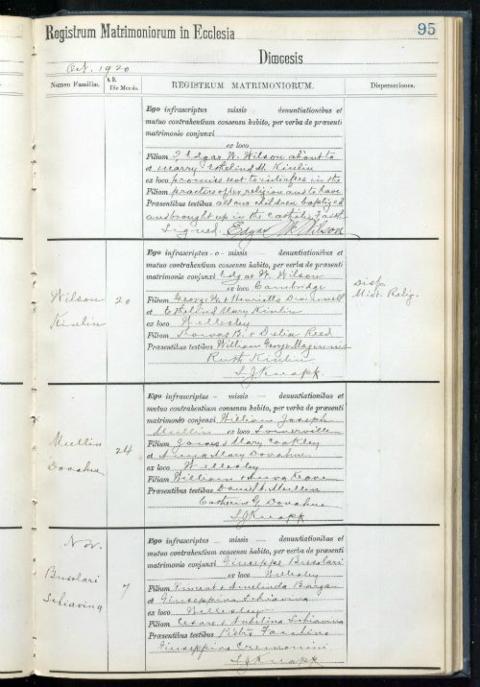 Registrum Matrimoniorum in Ecclesia
95
Diœcesis
Oct. 1920
Nomen Familiæ.
A. D.
Die Mensis.
REGISTRUM MATRIMONIORUM.
Dispensationes.
Ego infrascriptus missis denuntiationibus et
mutuo contrahentium consensu habito, per verba de præsenti
matrimonio conjunxi
ex loco
Filium I, Edgar W. Wilson about to
et marry Ethelind M. Kinlin
ex loco promise not to interfere in the
Filiam practice of her religion and to have
Præsentibus testibus all our children baptized
and brought up in the Catholic Faith
Signed. Edgar W. Wilson
Wilson
Kinlin
20
Ego infrascriptus - o - missis denuntiationibus et
mutuo contrahentium consensu habito, per verba de præsenti
matrimonio conjunxi Edgar W. Wilson
ex loco Cambridge
Filium George W. & Henrietta
et Ethelind Mary Kinlin
ex loco Wellesley
Filiam Thomas B. & Delia Reed
Præsentibus testibus William George
Ruth Kinlin
S J Knapp
Disp.
Mixt. Relig.
Mullin
Donahue
24
Ego infrascriptus - missis - denuntiationibus et
mutuo contrahentium consensu habito, per verba de præsenti
matrimonio conjunxi William Joseph
Mullin ex loco Somerville
Filium James & Mary Coakley
et Anna Mary Donahue
ex loco Wellesley
Filiam William & Anna
Præsentibus testibus Daniel Mullin
Catherine G. Donahue
S J Knapp
Nov.
Busolari
Schiavina
7
Ego infrascriptus - missis - denuntiationibus et
mutuo contrahentium consensu habito, per verba de præsenti
matrimonio conjunxi Giuseppe Busolari
ex loco Wellesley
Filium Vincent & Amelinda
et Giuseppina Schiavina
ex loco Wellesley
Filiam Cesare & Schiavina
Præsentibus testibus Pietro
Giuseppina Cremonini
S J Knapp